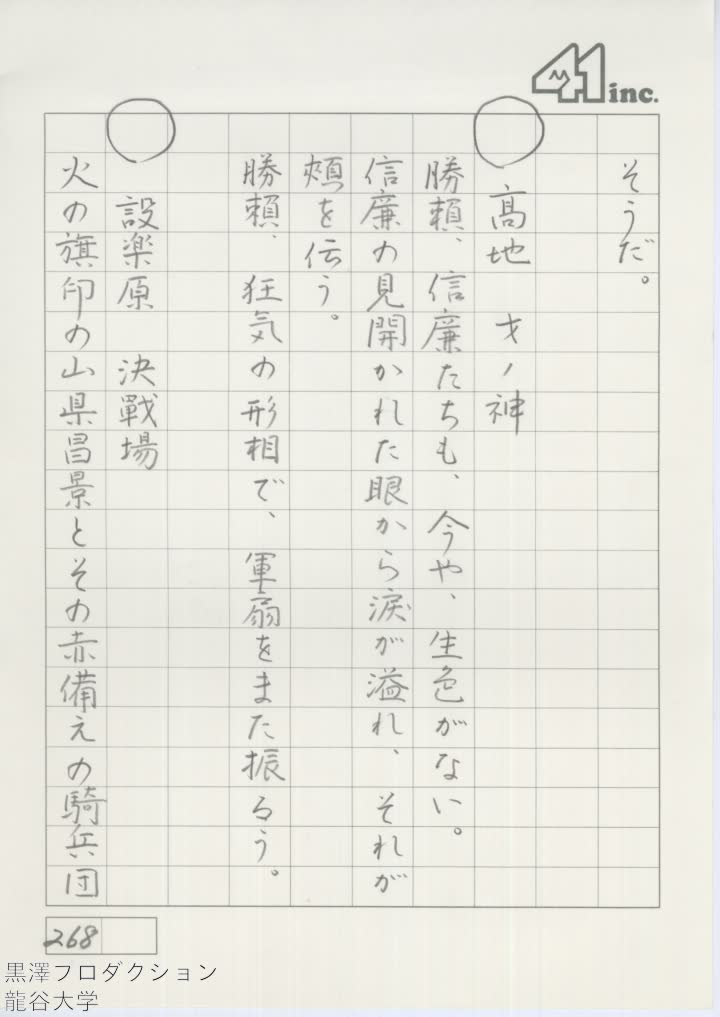 41 inc.
そうだ。
○ 高地 才ノ神
勝頼、信廉たちも、今や、生色がない。
信廉の見開かれた眼から涙が溢れ、それが
頬を伝う。
勝頼、狂気の形相で、軍扇をまた振るう。
○ 設楽原 決戦場
火の旗印の山県昌景とその赤備えの騎兵団
268
黒澤フロダクション
龍谷大学